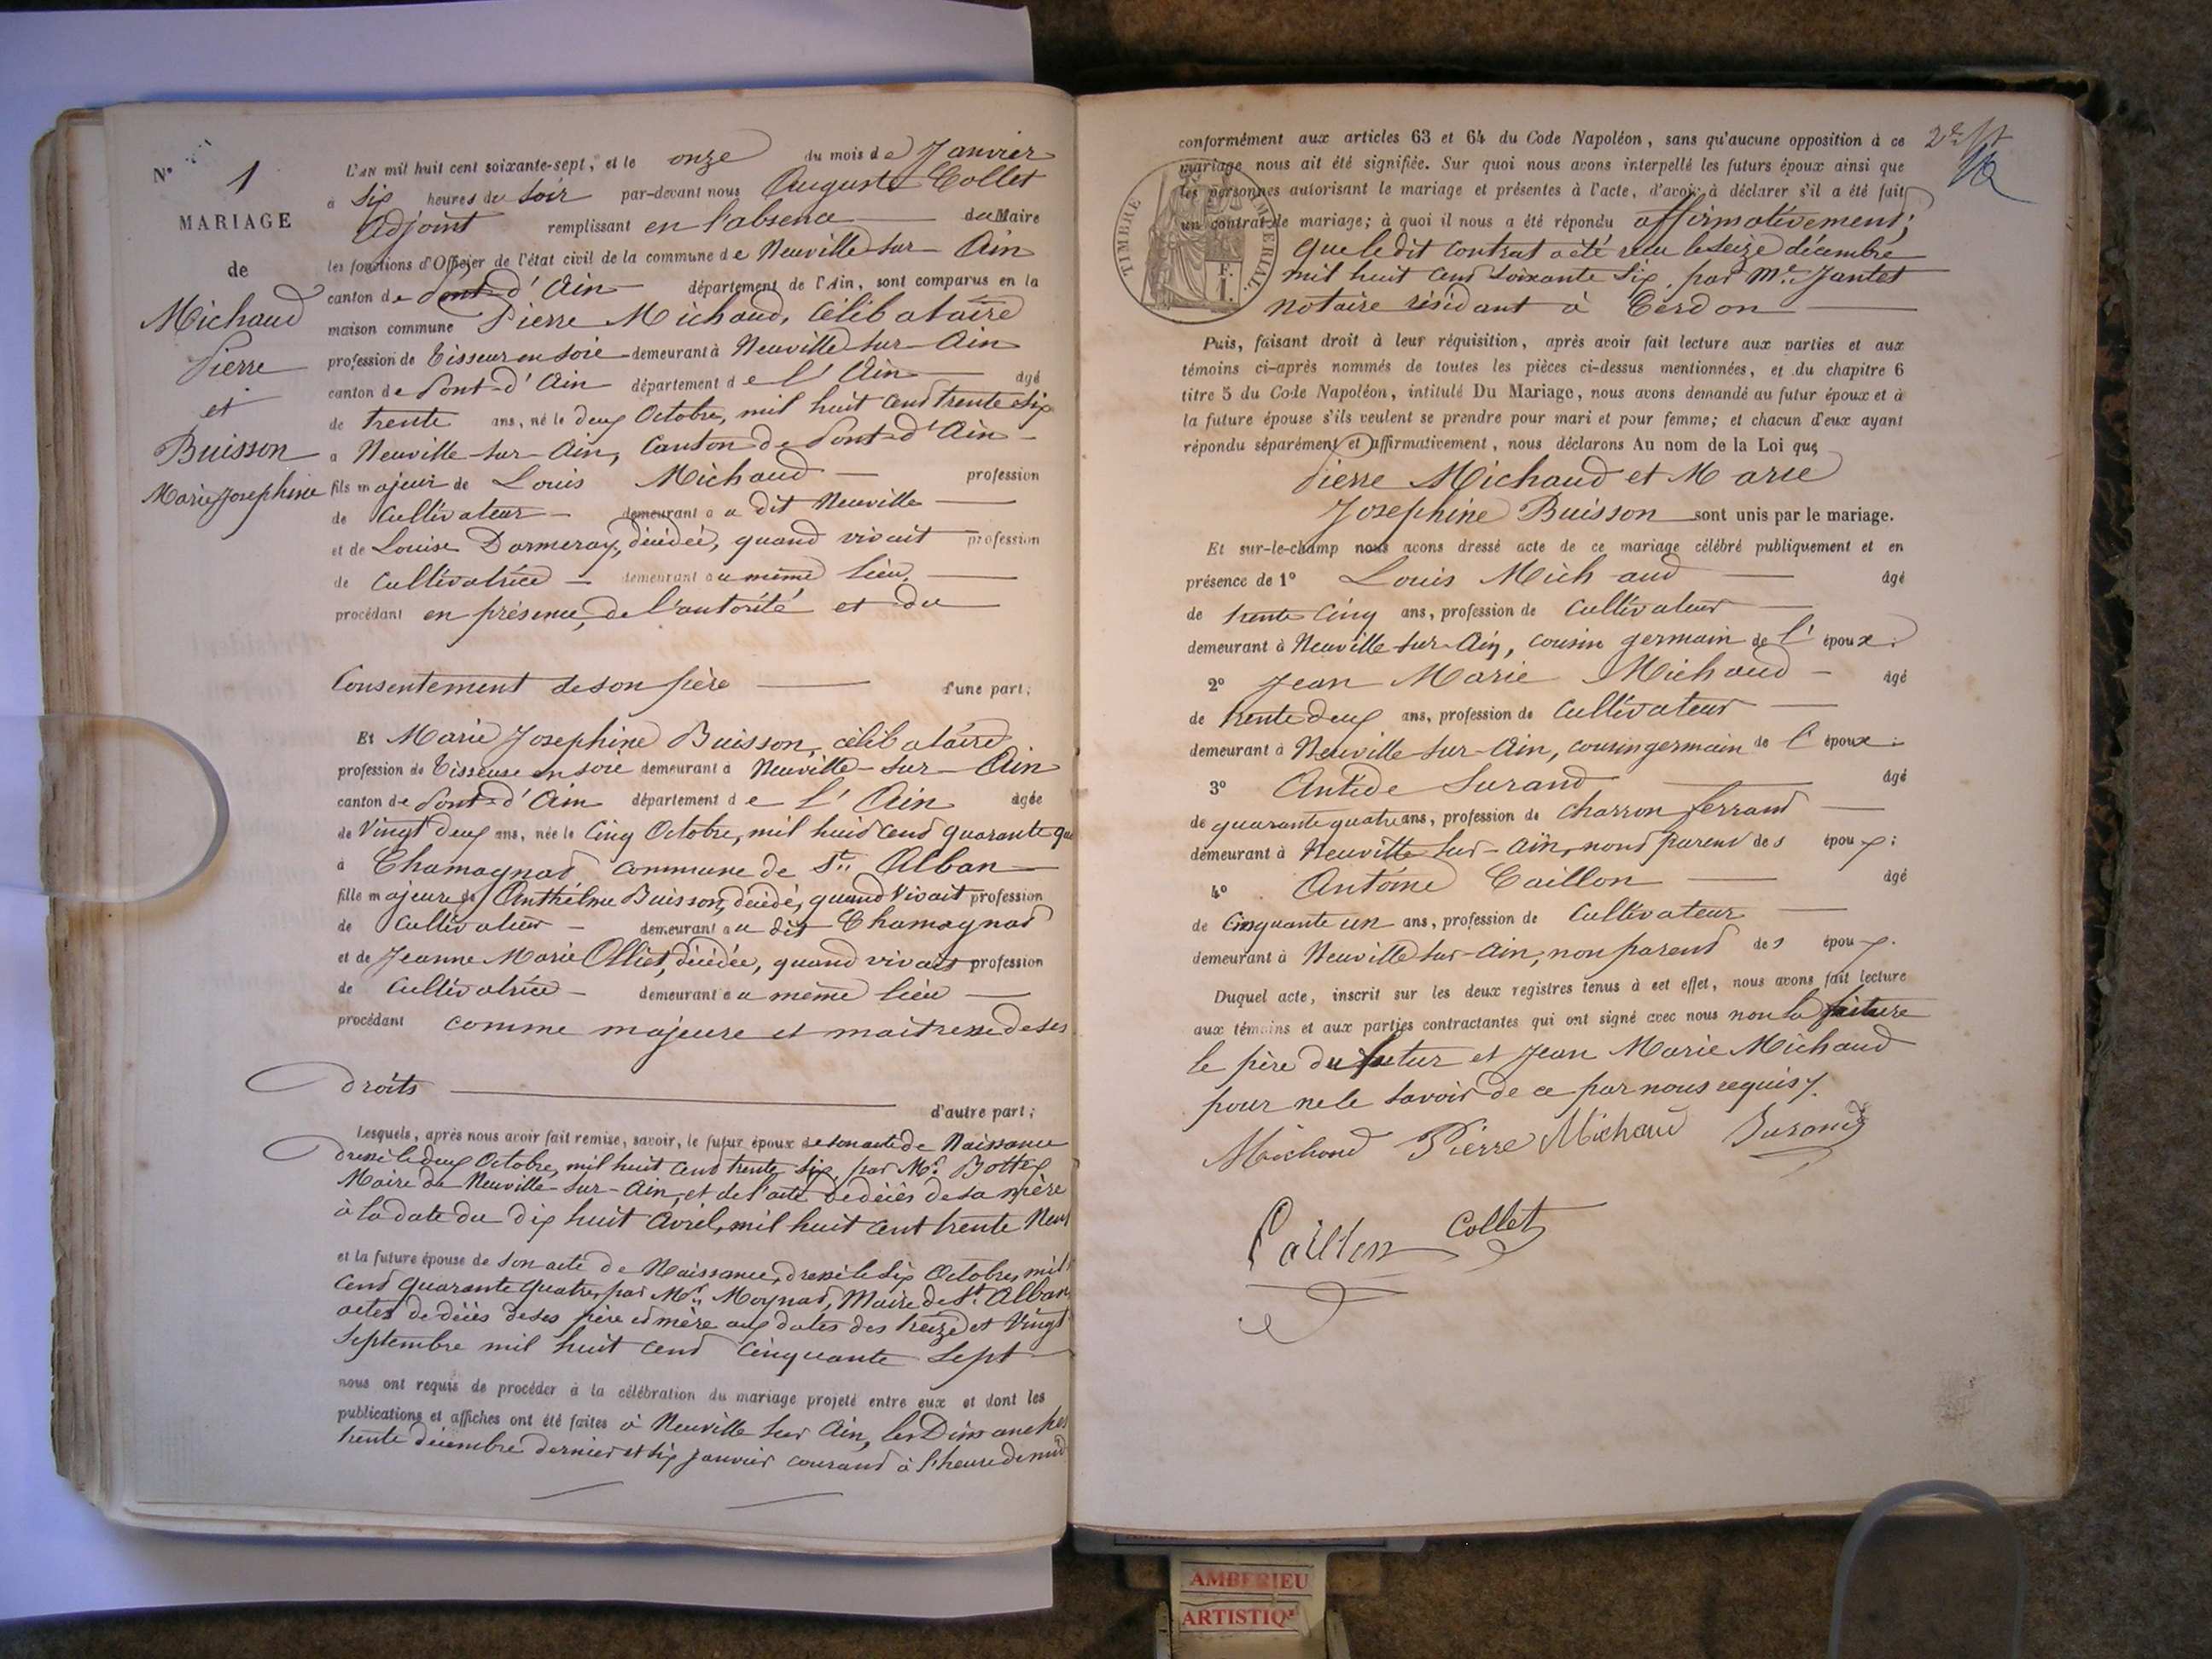 N° 1
MARIAGE
de
Michaud
Pierre
et
Buisson
Marie Josephine
L'AN mil huit cent soixante-sept, et le onze du mois de Janvier
à Six heures du Soir par-devant nous Auguste Collet
Adjoint remplissant en l'absence du Maire
les fonctions d'Officier de l'état civil de la commune de Neuville sur Ain
canton de Pont d'Ain département de l'Ain, sont comparus en la
maison commune Pierre Michaud, Célibataire
profession de Tisseur en soie demeurant à Neuville sur Ain
canton de Pont d'Ain département de l'Ain âgé
de trente ans, né le deux Octobre, mil huit cent trente six
à Neuville-sur-Ain, Canton de Pont d'Ain
fils majeur de Louis Michaud profession
de Cultivateur demeurant au dit Neuville
et de Louise Darmeray, décédée, quand vivait profession
de Cultivatrice demeurant au même lieu,
procédant en présence, de l'autorité et du
Consentement de son père d'une part;
Et Marie Josephine Buisson, célibataire
profession de Tisseuse en soie demeurant à Neuville-sur-Ain
canton de Pont d'Ain département de l'Ain âgée
de Vingt deux ans, née le Cinq Octobre, mil huit cent quarante qu
à Chamagnat commune de St Alban
fille majeure de Anthélme Buisson, décédé, quand Vivait profession
de Cultivateur demeurant au dit Chamagnat
et de Jeanne Marie Olliet, décédée, quand vivait profession
de Cultivatrice demeurant au même lieu
procédant comme majeure et maitresse de ses
droits
d'autre part;
Lesquels, après nous avoir fait remise, savoir, le futur époux de son acte de Naissance
dressé le deux Octobre, mil huit cent trente six, par Mr. Bottex
Maire de Neuville-sur-Ain, et de l'acte de décès de sa mère
à la date du dix huit Avril, mil huit cent trente Neuf
et la future épouse de son acte de Naissance, dressé le Six Octobre, mil
cent quarante quatre, par Mr. Moynat, Maire de St. Alban,
actes de décès de ses père et mère aux dates des treize et Vingt
Septembre mil huit cent Cinquante Sept
nous ont requis de procéder à la célébration du mariage projeté entre eux et dont les
publications et affiches ont été faites à Neuville sur Ain, les Dimanches
trente décembre dernier et six janvier courant à l'heure de midi
2e. ft
conformément aux articles 63 et 64 du Code Napoléon, sans qu'aucune opposition à ce
mariage nous ait été signifiée. Sur quoi nous avons interpellé les futurs époux ainsi que
les personnes autorisant le mariage et présentes à l'acte, d'avoir à déclarer s'il a été fait
un contrat de mariage; à quoi il nous a été répondu affirmativement;
TIMBRE IMPÉRIAL.
F.
I.
que le dit contrat a été reçu le seize décembre
mil huit cent soixante six, par Me. Jantet
notaire résidant à Cerdon
Puis, faisant droit à leur réquisition, après avoir fait lecture aux parties et aux
témoins ci-après nommés de toutes les pièces ci-dessus mentionnées, et du chapitre 6
titre 5 du Code Napoléon, intitulé Du Mariage, nous avons demandé au futur époux et à
la future épouse s'ils veulent se prendre pour mari et pour femme; et chacun d'eux ayant
répondu séparément et affirmativement, nous déclarons Au nom de la Loi que
Pierre Michaud et Marie
Josephine Buisson sont unis par le mariage.
Et sur-le-champ nous avons dressé acte de ce mariage célébré publiquement et en
présence de 1° Louis Michaud âgé
de trente cinq ans, profession de Cultivateur
demeurant à Neuville-sur-Ain, cousin germain de l'époux;
2° Jean Marie Michaud âgé
de trente deux ans, profession de Cultivateur
demeurant à Neuville-sur-Ain, cousin germain de l'époux;
3° Antide Surand âgé
de quarante quatre ans, profession de Charron ferrant
demeurant à Neuville sur-Ain, non parent des époux;
4° Antoine Caillon âgé
de Cinquante un ans, profession de Cultivateur
demeurant à Neuville sur-Ain, non parent des époux.
Duquel acte, inscrit sur les deux registres tenus à cet effet, nous avons fait lecture
aux témoins et aux parties contractantes qui ont signé avec nous non la future
le père du futur et Jean Marie Michaud
pour ne le savoir de ce par nous requis.
Michaud Pierre Michaud Surand
Caillon Collet
AMBERIEU
ARTISTIQ